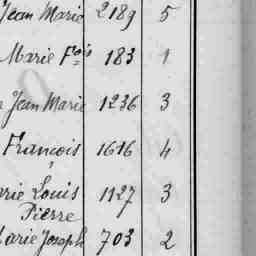 Jean Marie 2189 5
Marie Fois 183 1
Jean Marie 1236 3
François 1616 4
arie Louis 1127 3
Pierre
Marie Joseph 703 2